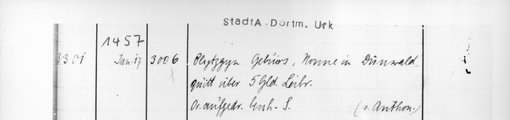 StadtA. Dortm. Urk
1457
3301 Jan. 17. 3006 Gebürs, Nonne in Dünwald,
quitt über 5 Gld. Leibr.
Or. aufgedr. S. (s. Anthon.)